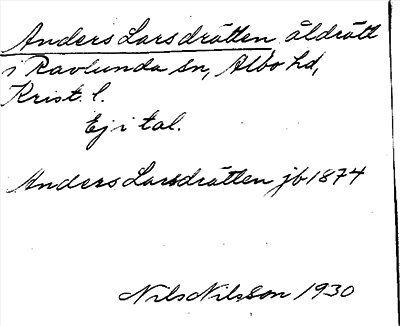 Anders Larsdrätten, åldrätt
i Ravlunda sn, Albo hd,
Krist. l.
Ej i tal.
Anders Larsdrätten jb 1874
Nils Nilsson 1930